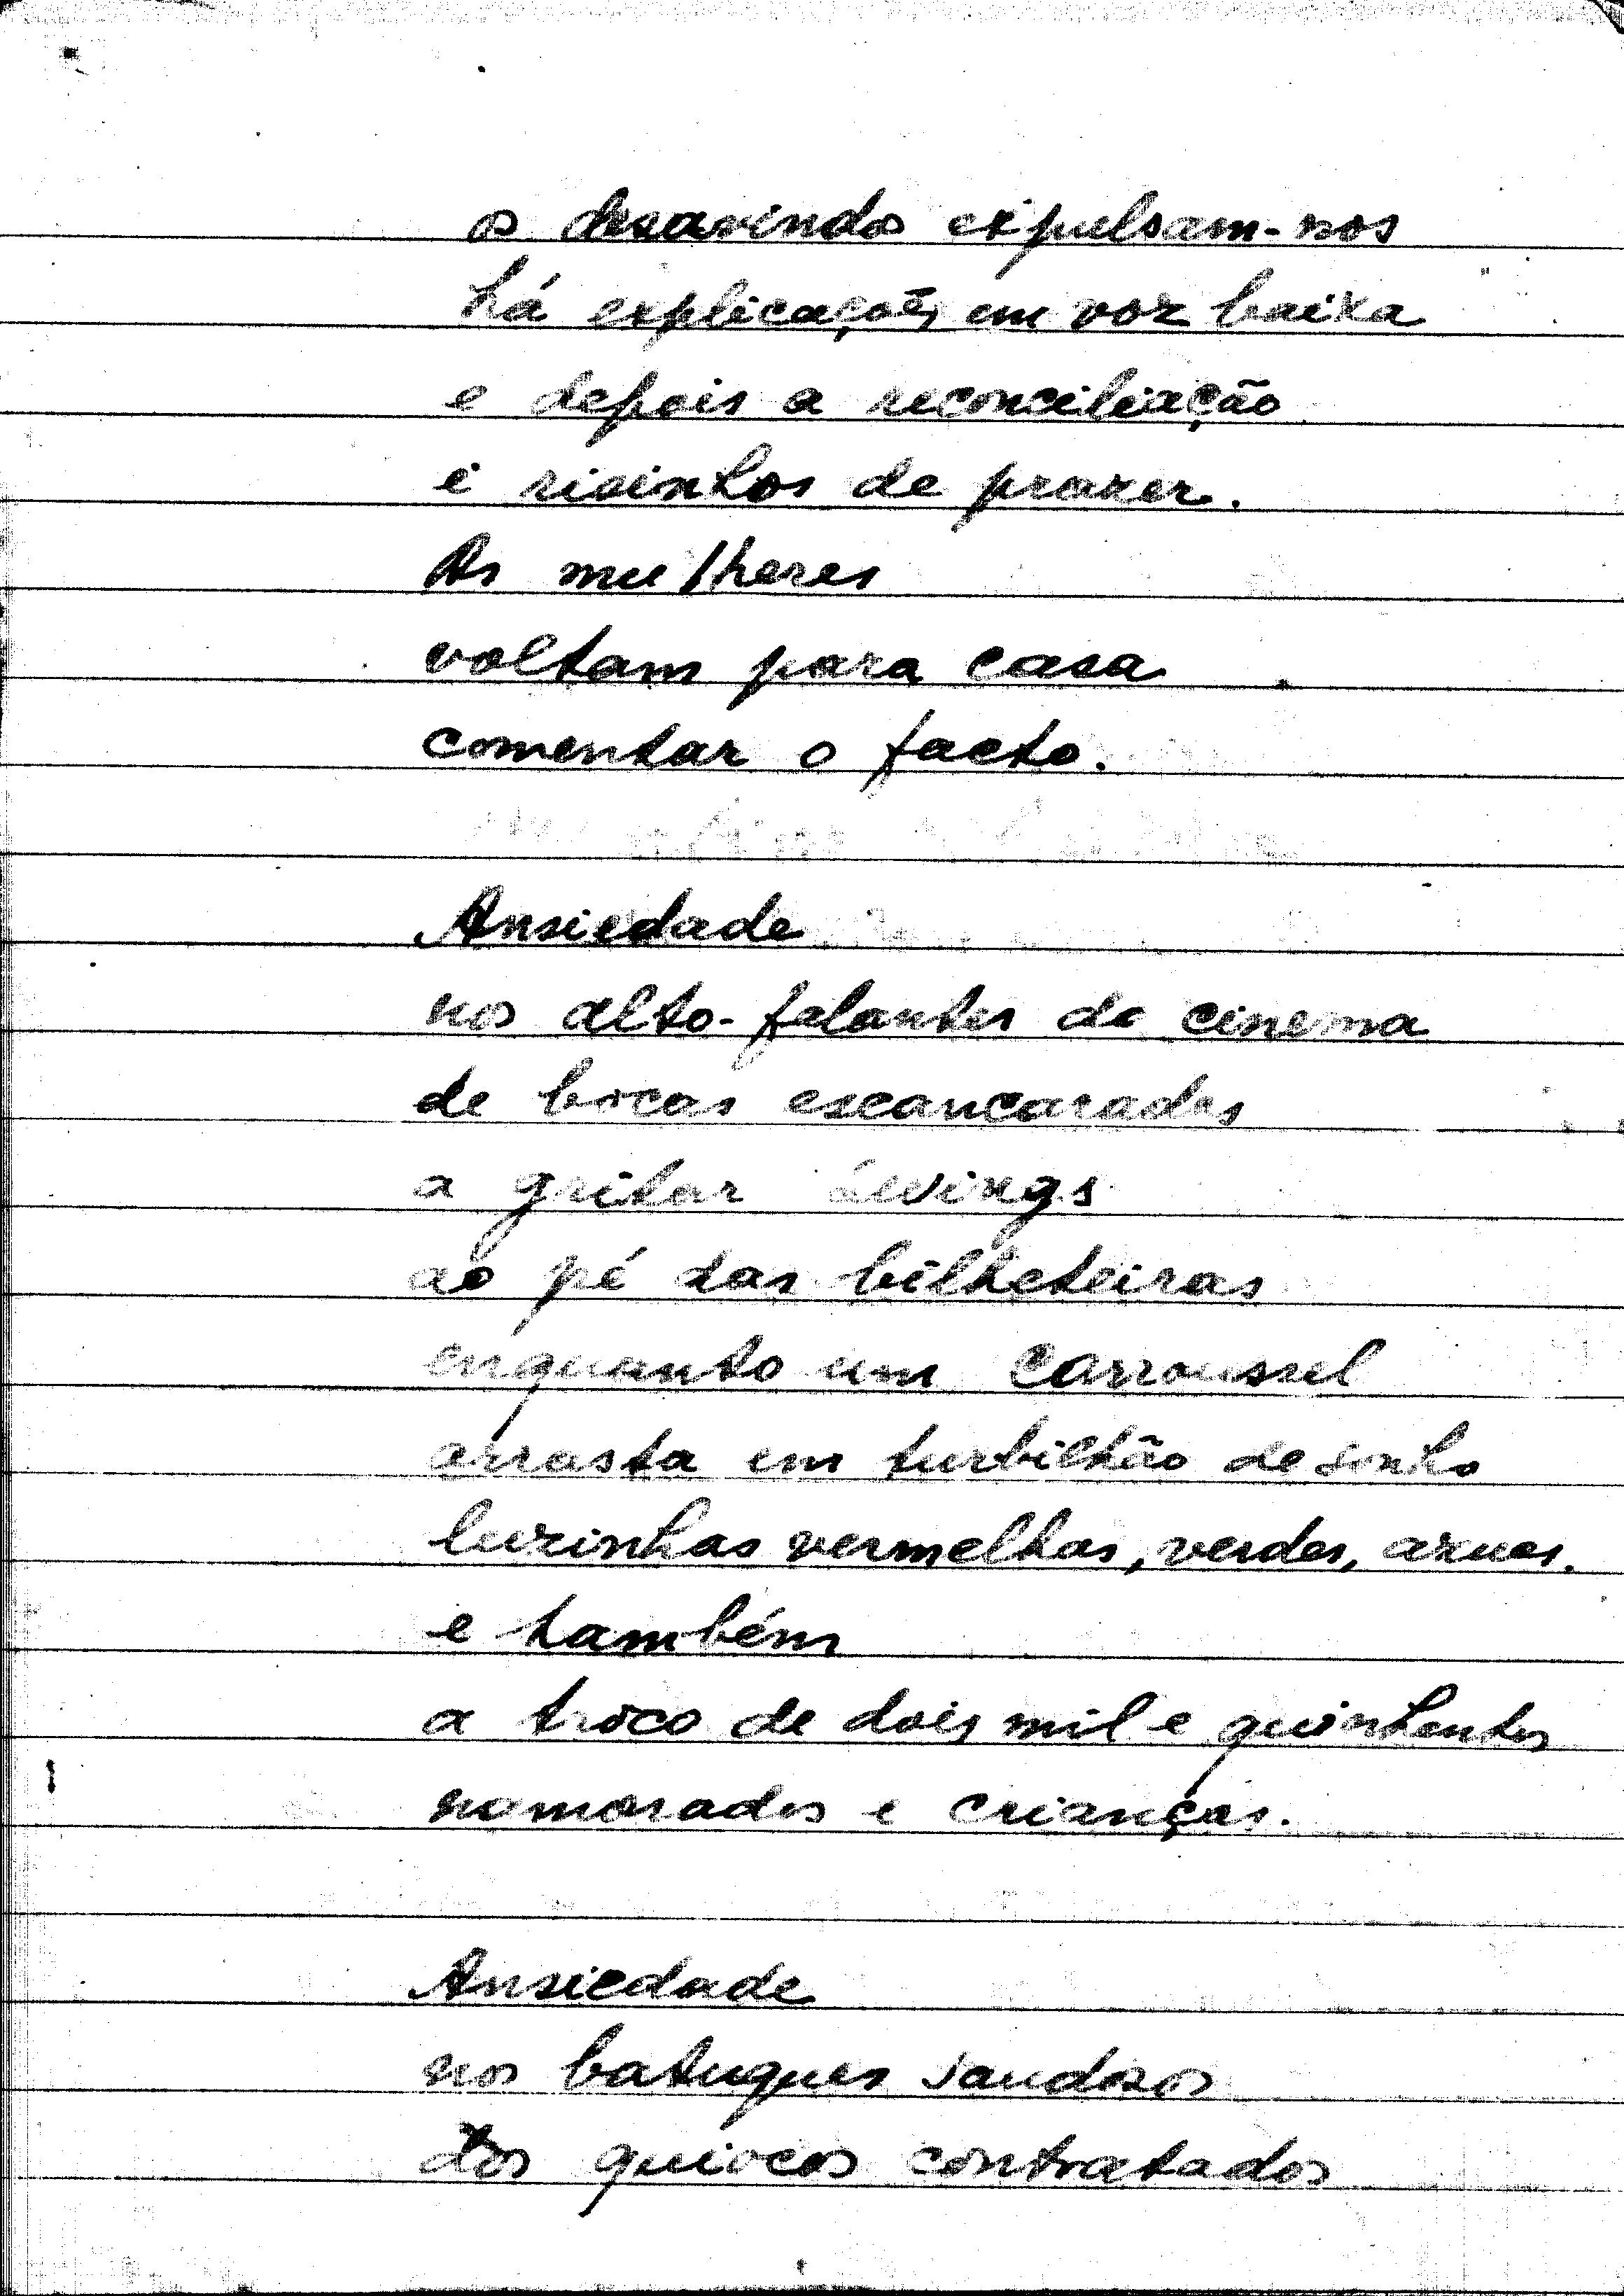 os desavindos expulsam-nos
há explicações em voz baixa
e depois a reconciliação
e risinhos de prazer.
As mulheres
voltam para casa
comentar o facto.
Ansiedade
nos alto-falantes do cinema
de bocas escancaradas
a gritar swings
ao pé das bilheteiras
enquanto um carroussel
arrasta em turbilhão de sonho
luzinhas vermelhas, verdes, azues.
e também
a troco de dois mil e quinhentos
namorados e crianças.
Ansiedade
nos batuques saudosos
dos quiocos contratados